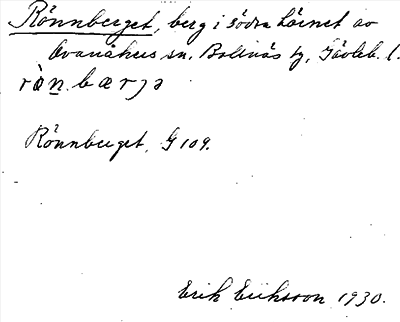 Rönnberget, berg i södra hörnet av
Ovanåkers sn. Bollnäs tg, Gävleb. l.
rὰn.bærjə
Rönnberget, G 109.
Erik Eriksson 1930.